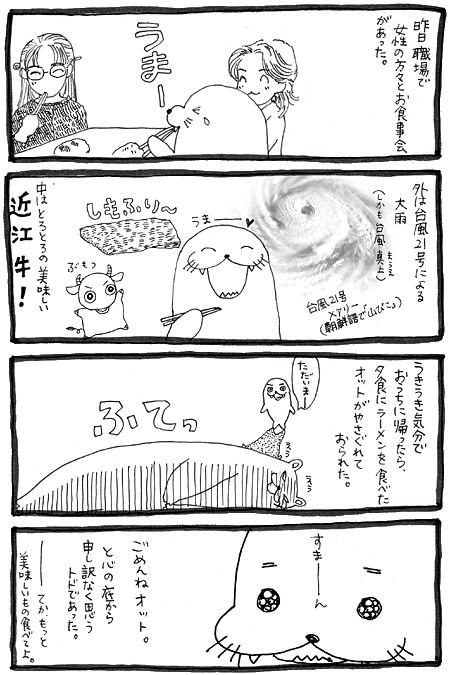 昨日職場で
女性の方々とお食事会
があった。
うまー
外は台風21号による
大雨
(しかも台風真上)
うまーー♥
しもふり〜
台風21号
メアリー
(朝鮮語で「山びこ」)
ぶもっ
中はとろとろの美味しい
近江牛！
うきうき気分で
おうちに帰ったら、
夕食にラーメンを食べた
オットがやさぐれて
おられた。
ただいま
ふてっ
すまーーん
ごめんねオット。
と心の底から
申し訳なく思う
トドであった。
――てか、もっと
美味しいもの食べてよ。